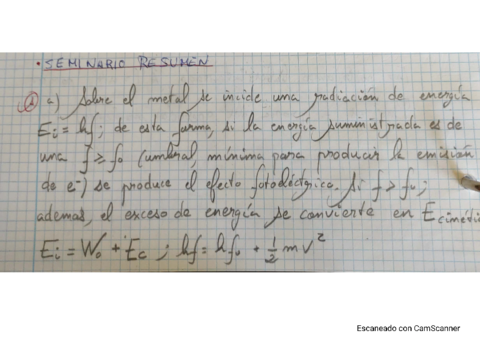 • SEMINARIO RESUMEN
1 a) Sobre el metal se incide una radiación de energía
Ei = hf; de esta forma, si la energía suministrada es de
una f ≥ f₀ (umbral mínima para producir la emisión
de e⁻) se produce el efecto fotoeléctrico. Si f > f₀;
ademas, el exceso de energía se convierte en Ecinéti
Ei = W₀ + Ec ; hf = hf₀ + ½ m v²
Escaneado con CamScanner